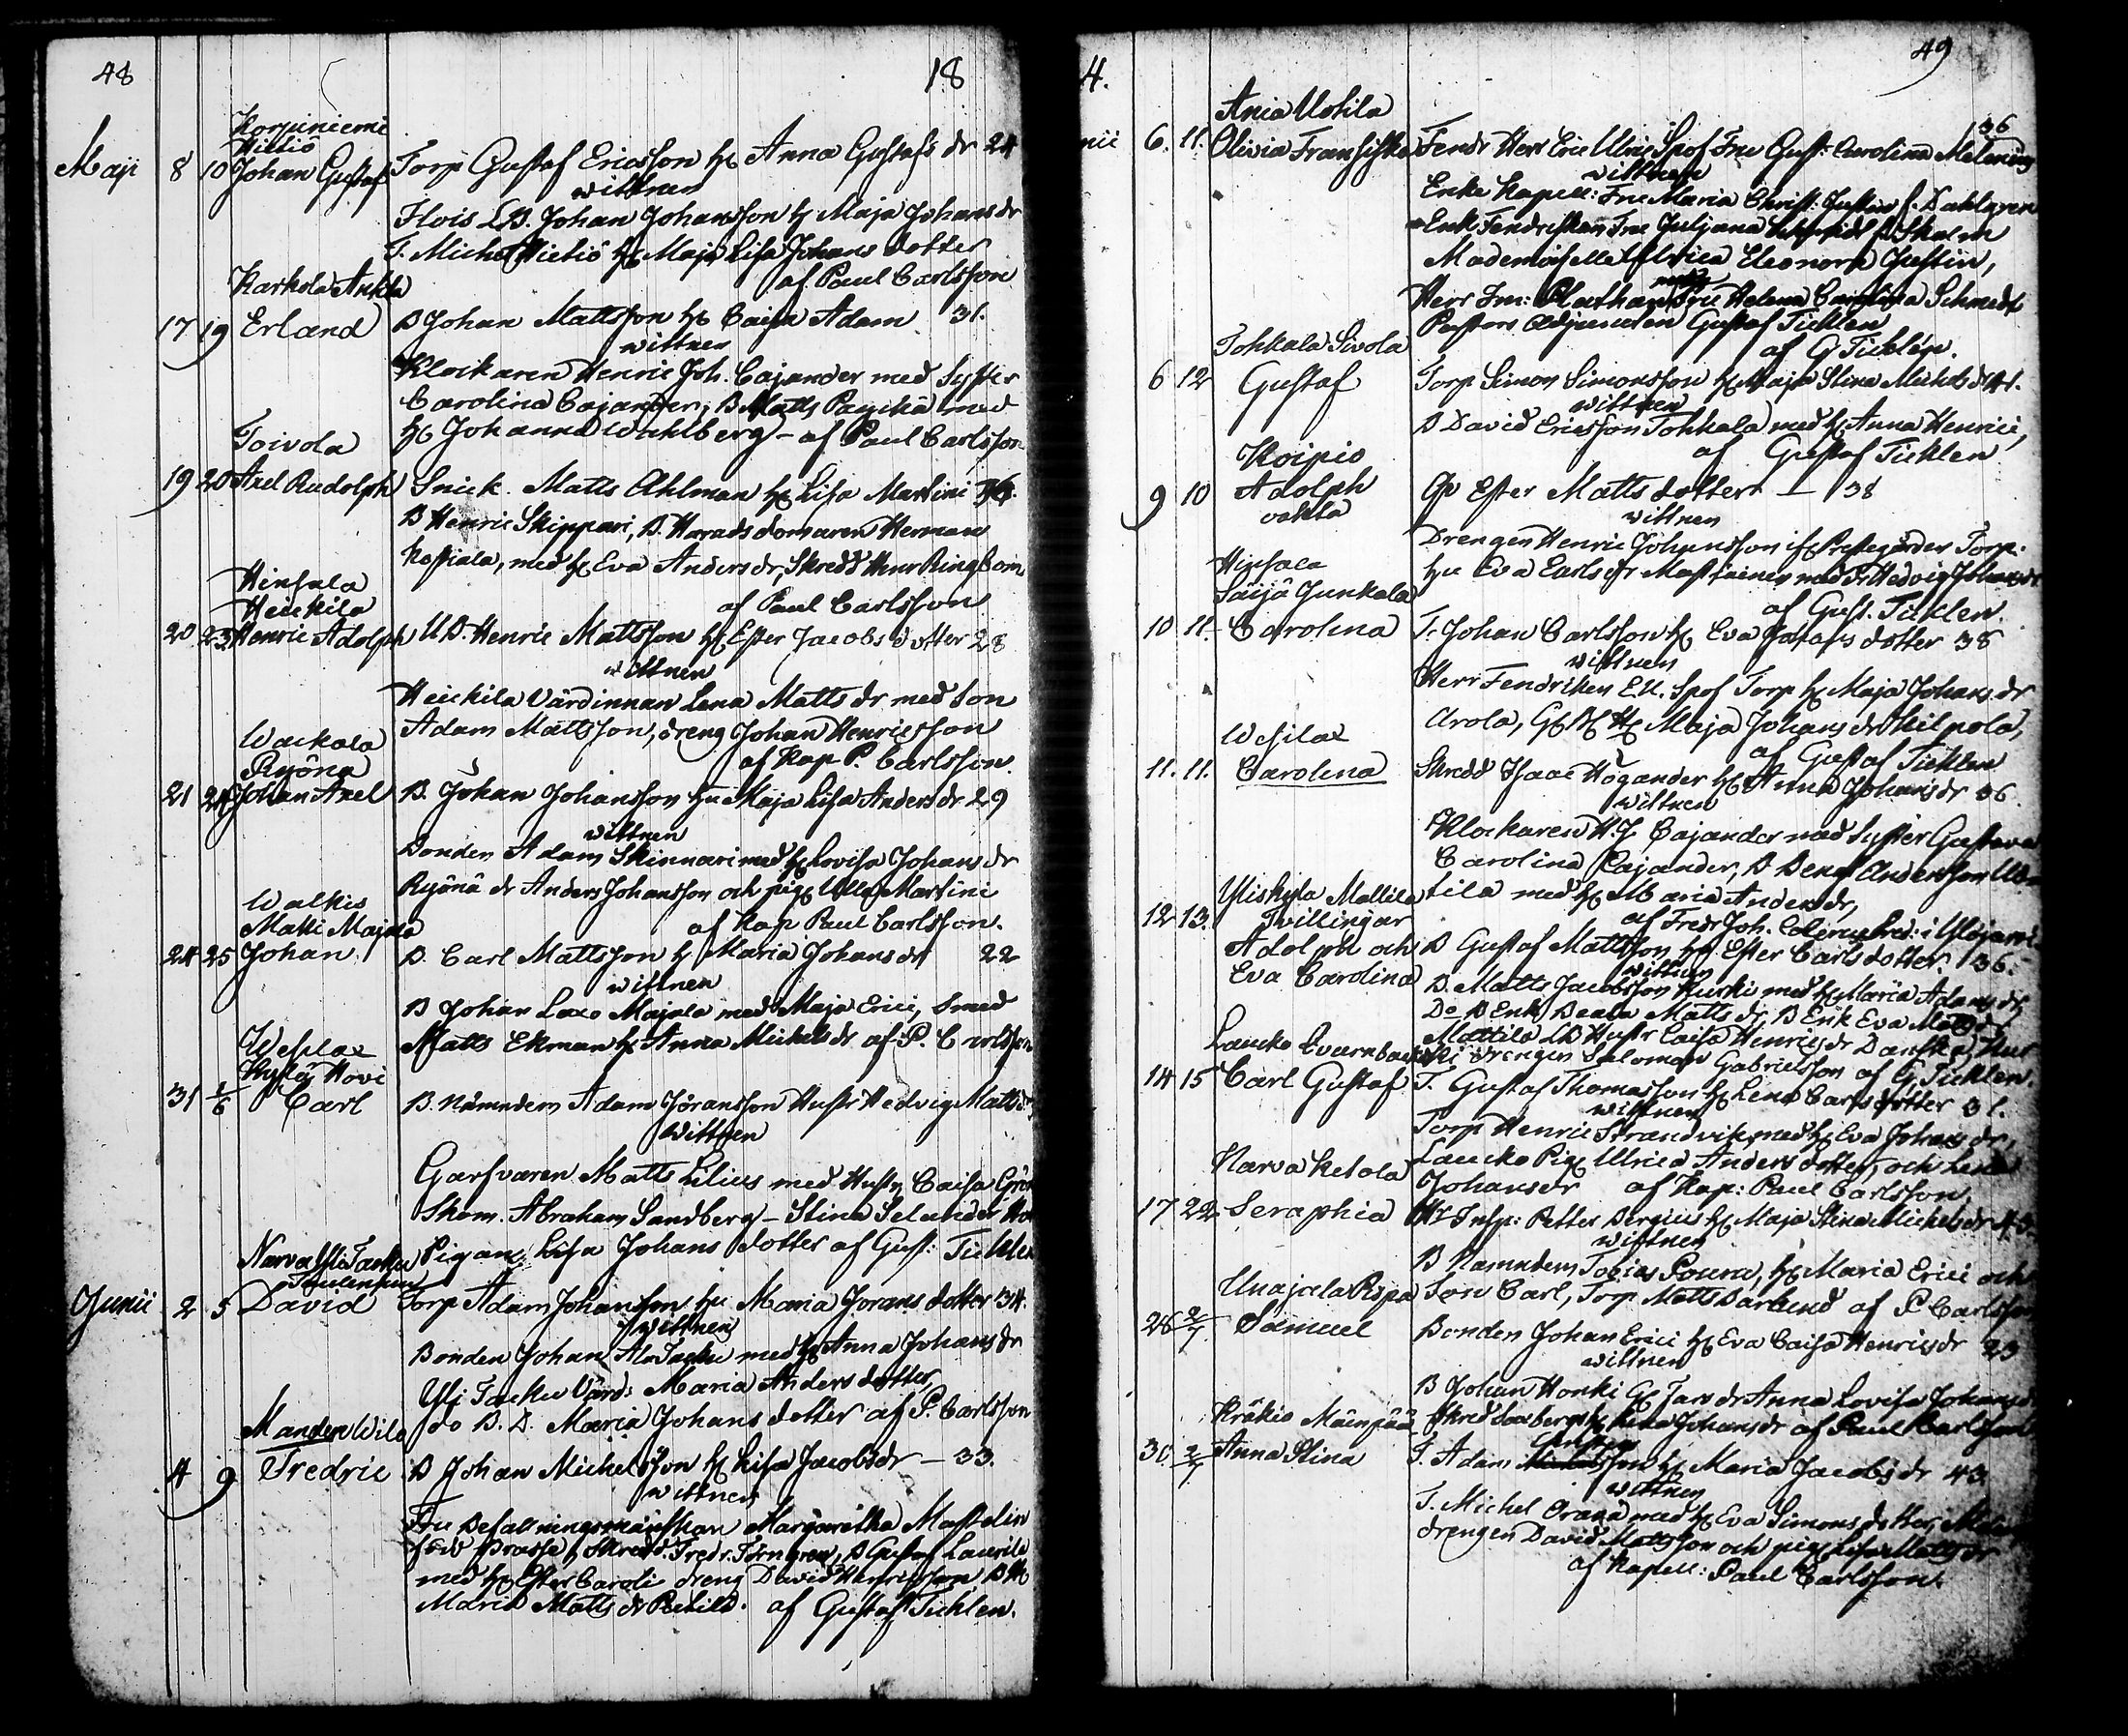 48
18
Korpiniemi
Hietiö
Maji 8 10 Johan Gustaf Torp Gustaf Ericsson hu Anna Gustafs dr 24
wittnen
Flois LB. Johan Johansson h Maja Johans dr
T. Michel Hietiö hu Maja Lisa Johans dotter
af Paul Carlsson
Karkola Ankla
17 19 Erland B Johan Mattsson hu Caisa Adam 31.
wittnen
Klockaren Henric Joh. Cajander med Syster
Carolina Cajander, B Matts med
hu Johanna Wahlberg - af Paul Carlsson
Toivola
19 20 Axel Rudolph Snick. Matts Ahlman hu Lisa Martini
B Henric Skippari, B. Haradsdomaren Herman
med hu Eva Anders dr, Skredd Henr Ringbom
af Paul Carlsson
Hinsala
Heickilä
20 23 Henric Adolph UB. Henric Mattsson hu Ester Jacobs dotter 28
wittnen
Heickilä Värdinnan Lena Matts dr med Son
Adam Mattsson, dreng Johan Henricsson
af Kap P. Carlsson.
Wackala
Ryönä
21 24 Johan Axel B. Johan Johansson hu Maja Lisa Anders dr 29
wittnen
Bonden Adam Skinnari med hu Lovisa Johans dr
Ryönä dr Anders Johansson och pig Ulla Martini
af Kap Paul Carlsson.
Walkis
Matti Majala
24 25 Johan B. Carl Mattsson h Maria Johans dr 22
wittnen
B Johan Laxo Majala med Maja Erici, Smed
Matts Ekman hu Anna Michels dr af P. Carlsson
Wesilax
Kylä Hovi
31 1/6 Carl B. Nämndem Adam Jöransson Hustr Hedvig Matts dr
Wittnen
Garfvaren Matts Lilius med Hustr Caisa
Skom. Abraham Sandberg - Stina Selander
Pigan Lisa Johans dotter af Gust: Ticklen
Narva Yli Tacku
Junii 2 5 David Torp Adam Johansson hu Maria Jorans dotter 34.
wittnen
Bonden Johan Ala Tacku med hu Anna Johans dr
Yli Tacku Värd: Maria Anders dotter,
do B. D. Maria Johans dotter af P. Carlsson
Manden Wila
4 9 Fredric B Johan Michelsson hu Lisa Jacobs dr - 33.
wittnen
Fru Befallningsmanskan Margaretha Mastelin
född Skredd. Fredr. Törngren, B Gustaf Laurila
med hu Ester Caroli dreng David Henricsson
Maria Matts dr af Gustaf Ticklen.
4.
49
Ania Uotila
36
6. 11. Olivia Fransiska Fendr Herr Eric Ulric Spof Fru Gust: Carolina Melening
wittnen
Enke Kapell: Fru Maria Christ: Justin f. Dahlgren
Enk Fendrikskan Fru Juliana
Mademoiselle Ulrica Eleonora Justin,
Herr Fru Helena Carolina Schmidt
Pastors Adjuncten Gustaf Ticklen
af G Ticklén.
Tohkala Sivola
6 12 Gustaf Torp Simon Simonsson hu Maja Stina Michels dr 41.
wittnen
B David Ericsson Tohkala med hu Anna Henrici,
af Gustaf Ticklen
Koipio
9 10 Adolph Qv Ester Matts dotter — 38
vakla
wittnen
Drengen Henric Johansson Prestegården Torp.
hu Eva Carls dr med dr Hedvig Johans dr
af Gust. Ticklen.
Hinsala
Säijä Junkala
10 11 Carolina T. Johan Carlsson hu Eva Gustafs dotter 38
wittnen
Herr Fendriken E.U. Spof Torp hu Maja Johans dr
Arola, Maja Johans dr Kilpola,
af Gustaf Ticklen
Wesilax
11. 11. Carolina Skredd Isaac Högander hu Anna Johans dr 36
wittnen
Klockaren H.J. Cajander med Syster Gustava
Carolina Cajander, B Bengt Andersson
tila med hu Maria Anders dr,
af Fredr Joh. i Ylöjärvi
Yliskylä Mattila
12 13. Tvillingar
Adolph och B Gustaf Mattsson hu Ester Carls dotter 36.
Eva Carolina
wittnen
B. Matts Jacobsson Kuski med hu Maria Adams dr
Do B Enk Beata Matts dr, B Enk Eva Matts dr
Mattila LB Hustr Caisa Henrics dr
drengen Salomon Gabrielsson af G. Ticklen
Laucko
14 15 Carl Gustaf T. Gustaf Thomasson hu Lena Carls dotter 31.
wittnen
Torp Henric Strandvik med hu Eva Johans dr,
Laucko Pig Ulrica Anders dotter, och Lena
Johans dr af Kap: Paul Carlsson
Narva Ketola
17 22 Seraphia Insp: Petter Bergius hu Maja Stina Michels dr
wittnen
B Namndem Tobias Pouru, hu Maria Erici och
Son Carl, Torp Matts Barlund af P Carlsson
Unajala Ripa
26 2/7 Samuel Bonden Johan Erici hu Eva Caisa Henrics dr 23
wittnen
B Johan Honki dr Anna Lovisa Johans dr
Skred hu Lena Johans dr af Paul Carlsson
Kräkis Mäenpää
30 2/7 Anna Stina T. Adam hu Maria Jacobs dr 43
wittnen
T. Michel med hu Eva Simons dotter,
drengen David Mattsson och pig Lisa Matts dr
af Kapell: Paul Carlsson.